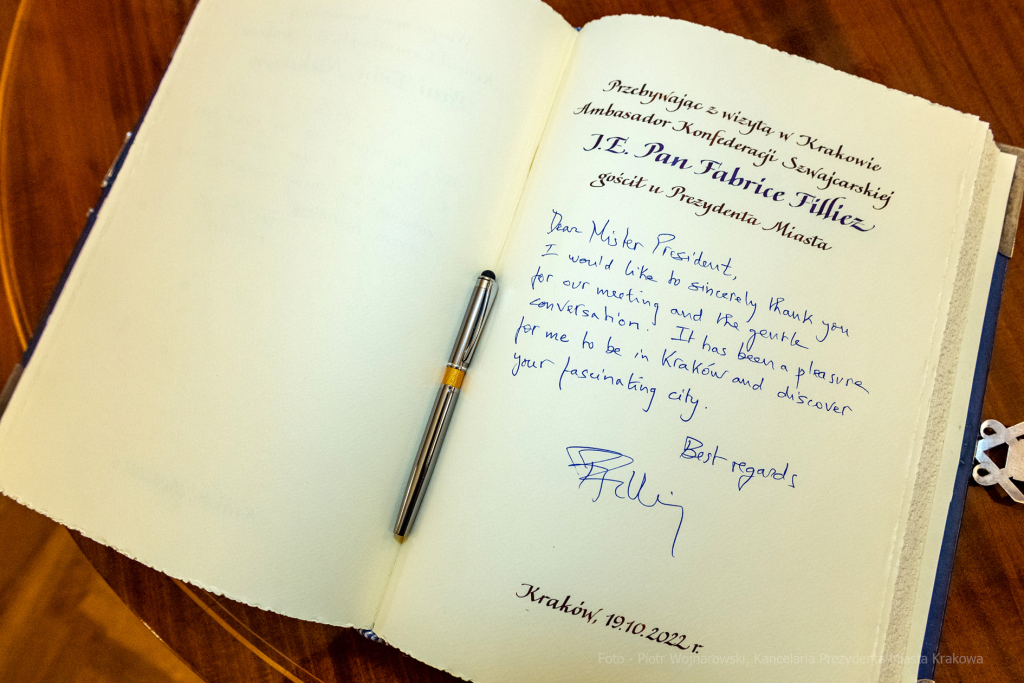 Przebywając z wizytą w Krakowie
Ambasador Konfederacji Szwajcarskiej
J.E. Pan Fabrice Filliez
gościł u Prezydenta Miasta
Dear Mister President,
I would like to sincerely thank you
for our meeting and the gentle
conversation. It has been a pleasure
for me to be in Kraków and discover
your fascinating city.
Best regards
Kraków, 19.10.2022 r.
Foto - Piotr Wojnarowski, Kancelaria Prezydenta Miasta Krakowa